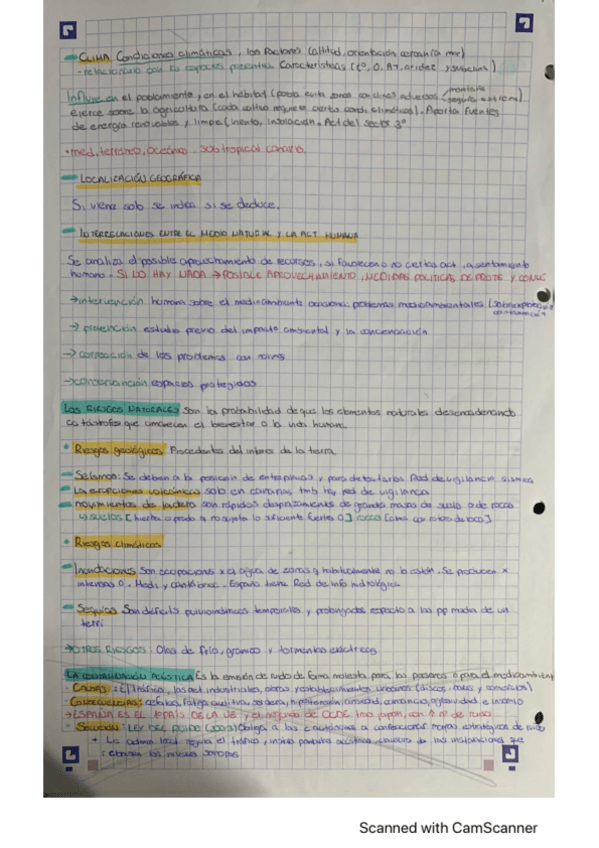 CLIMA Condiciones climáticas, los factores (altitud, orientación cercanía mar)
-relacionarlo con los espacios presentan Características (tº, P, AT, aridez y subclima)
Influye en el poblamiento y en el hábitat (pobla evita zonas con climas adversos montaña
ejerce sobre la agricultura (cada cultivo requiere ciertas condi climáticas). Aporta fuentes
de energía renovables y limpe (viento, insolación. Act del sector 3º
•mediterráneo, oceánico, subtropical canario.
LOCALIZACIÓN GEOGRÁFICA
Si viene solo se indica si se deduce.
INTERRELACIONES ENTRE EL MEDIO NATURAL Y LA ACT HUMANA
Se analiza el posible aprovechamiento de recursos, si favorecen o no ciertas act, asentamiento
humano. SI NO HAY NADA → POSIBLE APROVECHAMIENTO, MEDIDAS POLITICAS DE PROTE Y CONSC
→intervención humana sobre el medioambiente ocasiona problemas medioambientales (sobreexplotación
contaminación
→ prevención estudio previo del impacto ambiental y la concienciación
→ corrección de los problemas con normas
→conservación espacios protegidos
LOS RIESGOS NATURALES son la probabilidad de que los elementos naturales desencadenando
catástrofes que amenacen el bienestar o la vida humana.
• Riesgos geológicos Procedentes del interior de la tierra.
Seísmos: Se deben a la posición de entre placas y para detectarlos Red de vigilancia sísmica
La erupciones volcánicas solo en canarias tmb hay red de vigilancia
movimientos de ladera son rápidos desplazamientos de grandes masas de suelo o de rocas
• Riesgos climáticos
Inundaciones Son ocupaciones x el agua de zonas q habitualmente no lo están. Se producen x
intensas P. Medi y cantábrica. España tiene Red de info hidrológica
Sequías Son déficits pluviométricos temporales y prolongados respecto a las pp media de un
terri
→OTROS RIESGOS: Olas de frío, granizo y tormentas eléctricas
LA CONTAMINACIÓN ACÚSTICA Es la emisión de ruido de forma molesta para las personas o para el medioambiente
- CAUSAS: El tráfico, las act industriales, obras y establecimientos urbanos (discos, bares y comercios)
- CONSECUENCIAS: cefaleas, fatiga auditiva, sordera, hipertensión, ansiedad, cansancio, agresividad e insomnio
→ESPAÑA ES EL 1º PAÍS DE LA UE y el segundo de OCDE tras japón, con + nº de ruido
- SOLUCIÓN: LEY DEL RUIDO (2003) Obliga a las autónomas a confeccionar mapas estratégicos de ruido
• La admin local regula el tráfico, instala pantallas acústicas, clausura de las instalaciones que
rebasan los niveles sonoros
Scanned with CamScanner